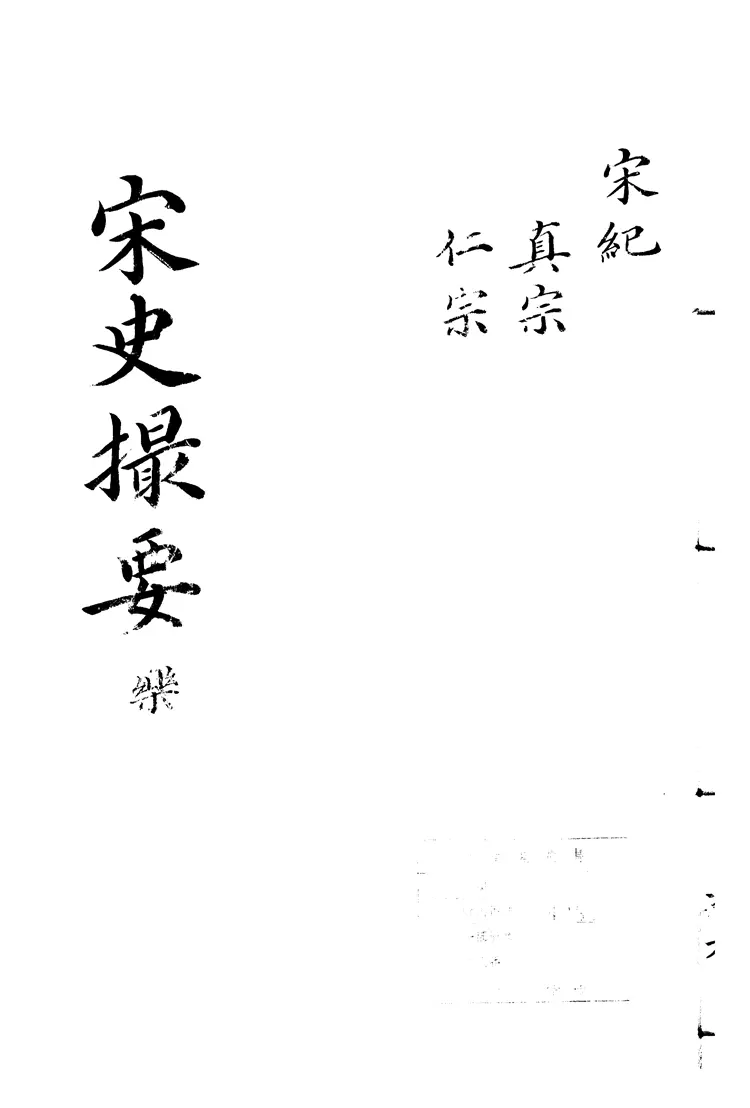 宋紀
真宗
仁宗
宋史撮要 樂